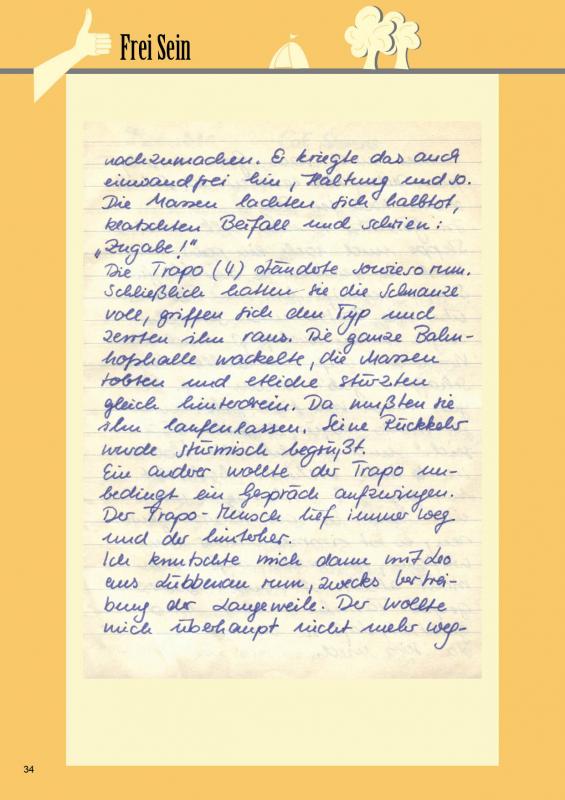 Frei Sein
nachzumachen. Er kriegte das auch
einwandfrei hin, Haltung und so.
Die Massen lachten sich halbtot,
klatschten Beifall und schrien:
„Zugabe!“
Die Trapo (4) ständete sowieso rum.
Schließlich hatten sie die Schnauze
voll, griffen sich den Typ und
zerrten ihn raus. Die ganze Bahn-
hofshalle wackelte, die Massen
tobten und etliche stürzten
gleich hinterdrein. Da mußten sie
ihn laufenlassen. Seine Rückkehr
wurde stürmisch begrüßt.
Ein anderer wollte der Trapo un-
bedingt ein Gespräch aufzwingen.
Der Trapo-Mensch lief immer weg
und der hinterher.
Ich knutschte mich dann mit Leo
aus Lübbenau rum, zwecks Vertrei-
bung der Langeweile. Der wollte
mich überhaupt nicht mehr weg-
34